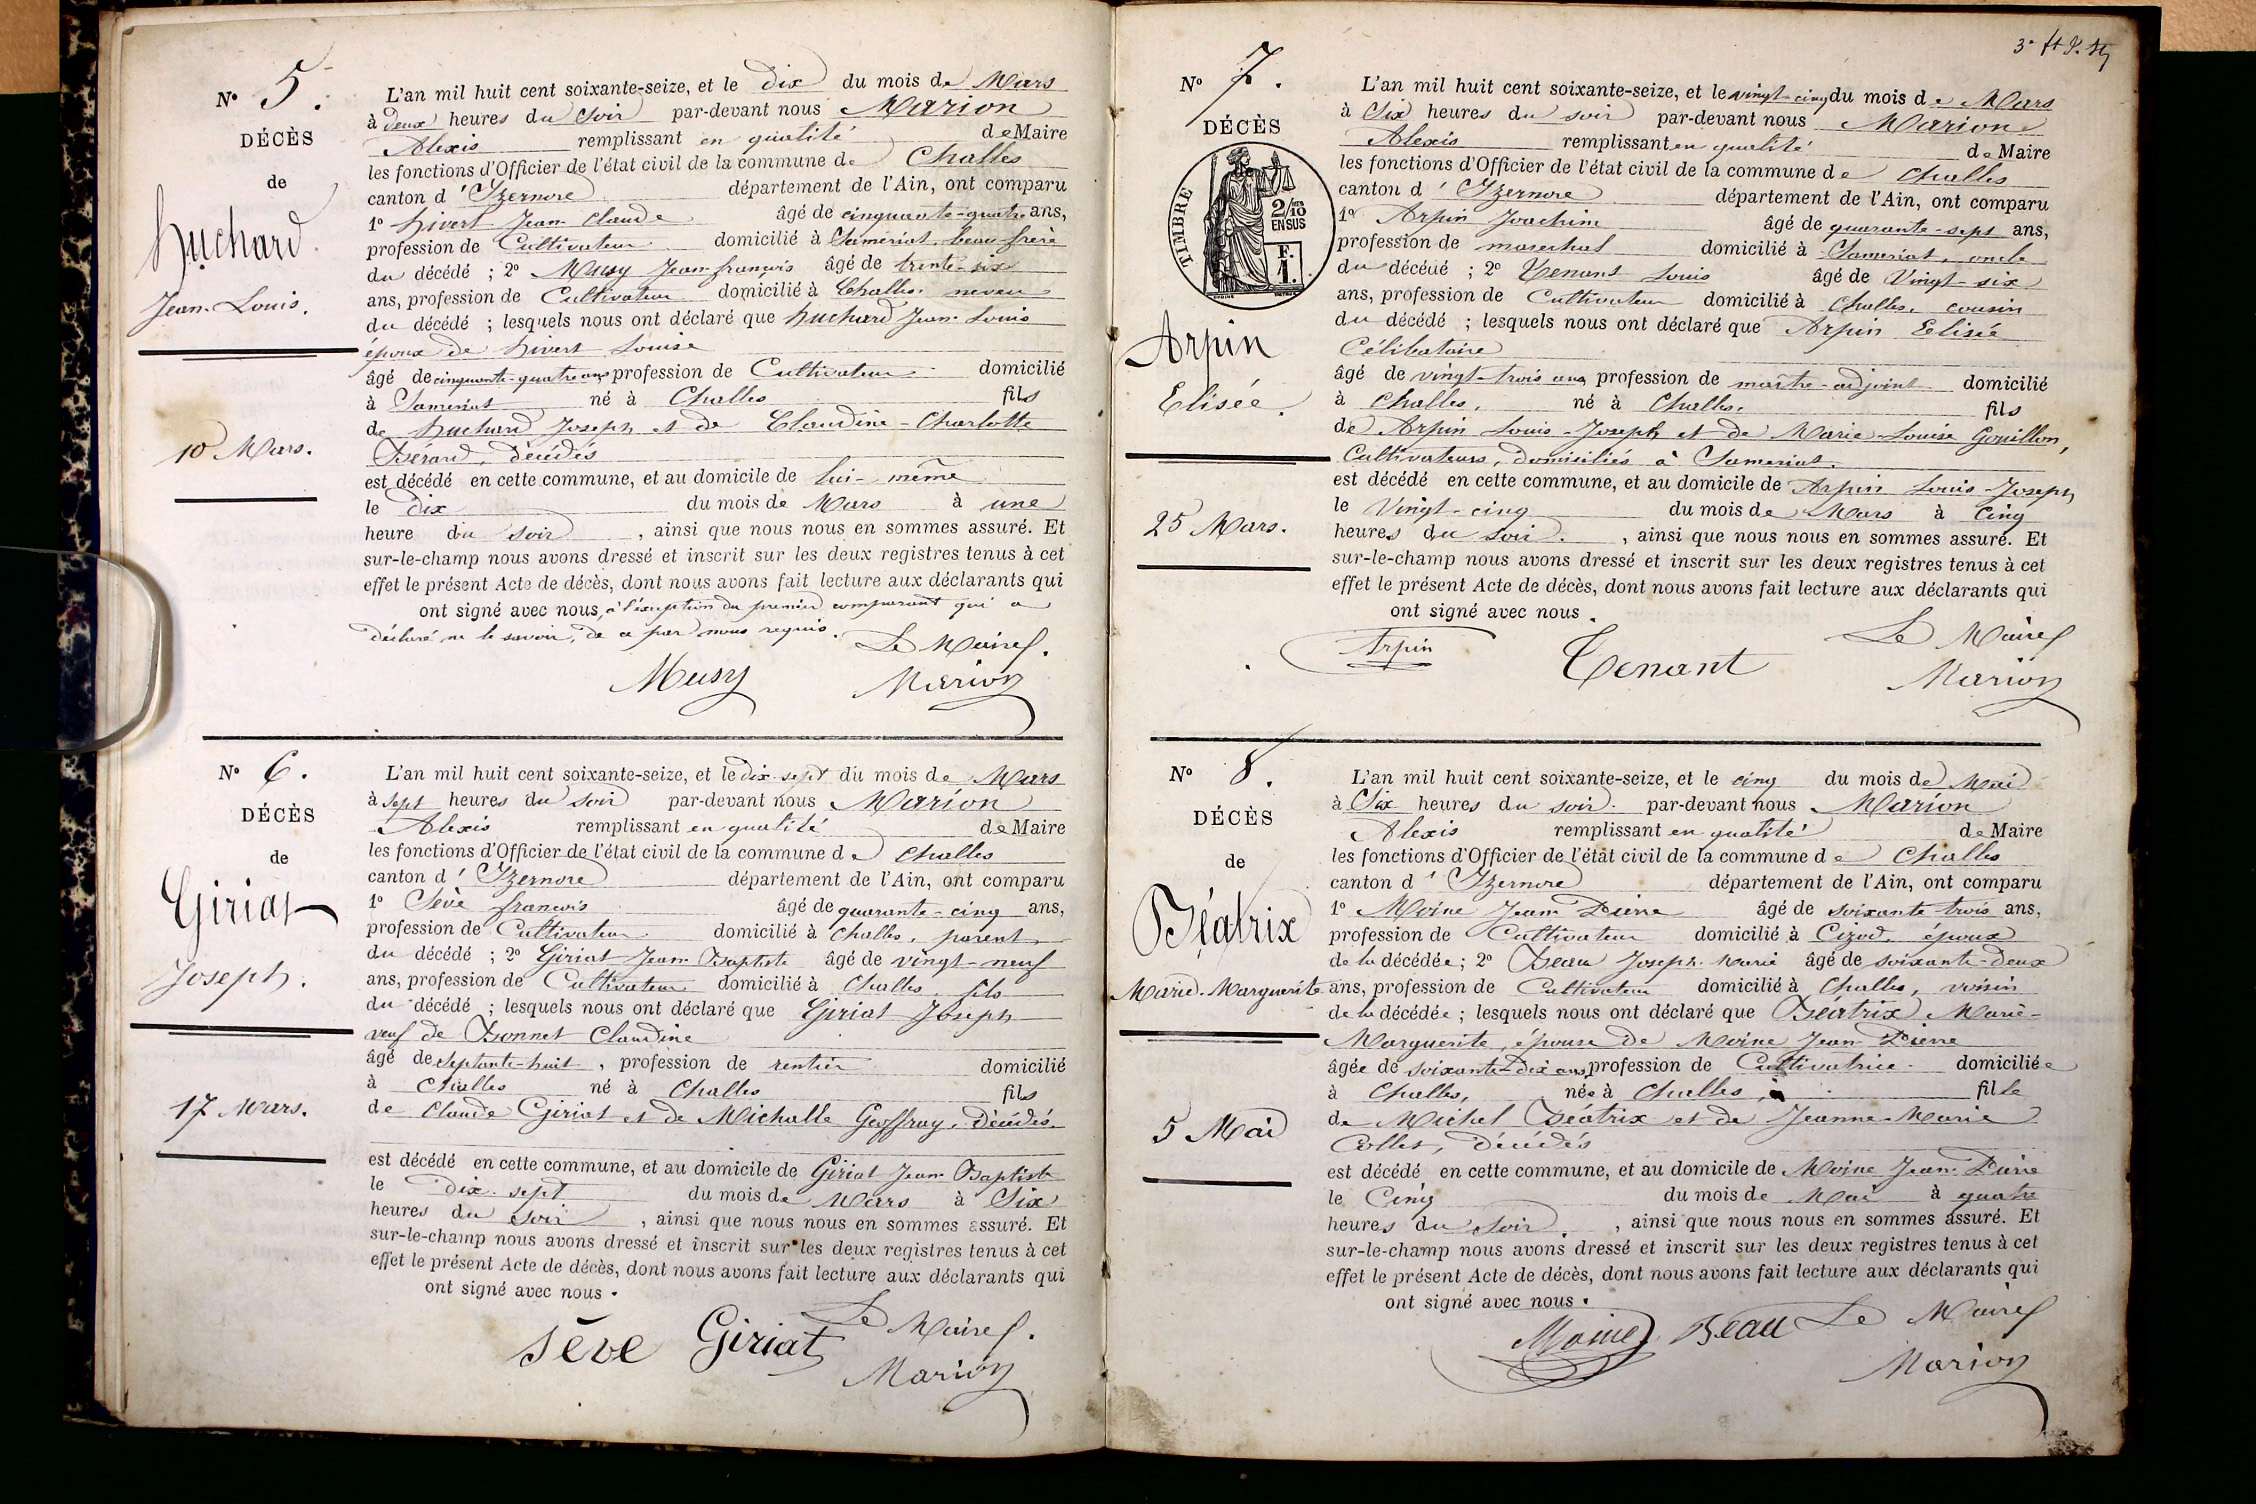 N° 5.
DÉCÈS
de
Huchard
Jean-Louis.
10 Mars.
L'an mil huit cent soixante-seize, et le dix du mois de Mars
à deux heures du soir par-devant nous Marion
Alexis remplissant en qualité de Maire
les fonctions d'Officier de l'état civil de la commune de Challes
canton d'Izernore département de l'Ain, ont comparu
1° hivert Jean Claude âgé de cinquante-quatre ans,
profession de Cultivateur domicilié à Samériat, beau-frère
du décédé ; 2° Musy Jean-françois âgé de trente-six
ans, profession de Cultivateur domicilié à Challes, neveu
du décédé ; lesquels nous ont déclaré que huchard Jean-Louis
époux de hivert Louise
âgé de cinquante-quatre ans, profession de Cultivateur domicilié
à Samériat né à Challes fils
de huchard Joseph et de Claudine-Charlotte
Berard, décédés
est décédé en cette commune, et au domicile de lui-même
le dix du mois de Mars à une
heure du soir, ainsi que nous nous en sommes assuré. Et
sur-le-champ nous avons dressé et inscrit sur les deux registres tenus à cet
effet le présent Acte de décès, dont nous avons fait lecture aux déclarants qui
ont signé avec nous, à l'exception du premier comparant qui a
déclaré ne le savoir, de ce par nous requis. Le Maire.
Musy Marion
N° 6.
DÉCÈS
de
Giriat
Joseph.
17 Mars.
L'an mil huit cent soixante-seize, et le dix-sept du mois de Mars
à sept heures du soir par-devant nous Marion
Alexis remplissant en qualité de Maire
les fonctions d'Officier de l'état civil de la commune de Challes
canton d'Izernore département de l'Ain, ont comparu
1° Sève françois âgé de quarante-cinq ans,
profession de Cultivateur domicilié à Challes, parent
du décédé ; 2° Giriat Jean-Baptiste âgé de vingt-neuf
ans, profession de Cultivateur domicilié à Challes fils
du décédé ; lesquels nous ont déclaré que Giriat Joseph
veuf de Bonnet Claudine
âgé de septante-huit, profession de rentier domicilié
à Challes né à Challes fils
de Claude Giriat et de Michalle Geoffray, décédés.
est décédé en cette commune, et au domicile de Giriat Jean-Baptiste
le dix-sept du mois de Mars à Six
heures du soir, ainsi que nous nous en sommes assuré. Et
sur-le-champ nous avons dressé et inscrit sur les deux registres tenus à cet
effet le présent Acte de décès, dont nous avons fait lecture aux déclarants qui
ont signé avec nous.
Le Maire.
Sève Giriat Marion
N° 7.
DÉCÈS
TIMBRE
2/10
EN SUS
F.
1.
Arpin
Elisée.
25 Mars.
L'an mil huit cent soixante-seize, et le vingt-cinq du mois de Mars
à Six heures du soir par-devant nous Marion
Alexis remplissant en qualité de Maire
les fonctions d'Officier de l'état civil de la commune de Challes
canton d'Izernore département de l'Ain, ont comparu
1° Arpin Joachim âgé de quarante-sept ans,
profession de marechal domicilié à Samériat, oncle
du décédé ; 2° Tenant Louis âgé de Vingt-six
ans, profession de Cultivateur domicilié à Challes, cousin
du décédé ; lesquels nous ont déclaré que Arpin Elisée
Célibataire
âgé de vingt-trois ans, profession de maître-adjoint domicilié
à Challes, né à Challes, fils
de Arpin Louis-Joseph et de Marie-Louise Gouillon,
Cultivateurs, domiciliés à Samériat.
est décédé en cette commune, et au domicile de Arpin Louis-Joseph
le Vingt-cinq du mois de Mars à Cinq
heures du soir, ainsi que nous nous en sommes assuré. Et
sur-le-champ nous avons dressé et inscrit sur les deux registres tenus à cet
effet le présent Acte de décès, dont nous avons fait lecture aux déclarants qui
ont signé avec nous.
Le Maire
Arpin Tenant Marion
N° 8.
DÉCÈS
de
Béatrix
Marie-Marguerite
5 Mai
L'an mil huit cent soixante-seize, et le cinq du mois de Mai
à Six heures du soir par-devant nous Marion
Alexis remplissant en qualité de Maire
les fonctions d'Officier de l'état civil de la commune de Challes
canton d'Izernore département de l'Ain, ont comparu
1° Moine Jean Pierre âgé de soixante trois ans,
profession de Cultivateur domicilié à Cizod, époux
de la décédée ; 2° Beau Joseph-Marie âgé de soixante-deux
ans, profession de Cultivateur domicilié à Challes, voisin
de la décédée ; lesquels nous ont déclaré que Béatrix Marie-
Marguerite, épouse de Moine Jean Pierre
âgée de soixante-dix ans, profession de Cultivatrice domiciliée
à Challes, née à Challes, fille
de Michel Béatrix et de Jeanne-Marie
Collet, décédés
est décédé en cette commune, et au domicile de Moine Jean-Pierre
le Cinq du mois de Mai à quatre
heures du soir, ainsi que nous nous en sommes assuré. Et
sur-le-champ nous avons dressé et inscrit sur les deux registres tenus à cet
effet le présent Acte de décès, dont nous avons fait lecture aux déclarants qui
ont signé avec nous.
Moine Beau Le Maire
Marion